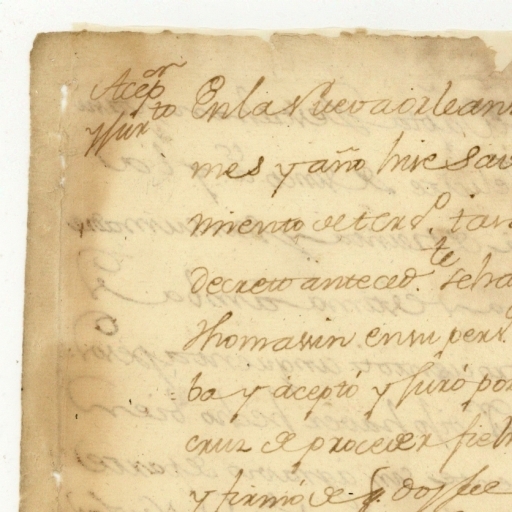 Acep.on
y Jur.to
En la Nueva orleans
mes y año hise Sav
miento de
decreto anteced.te se ha
Thomassin en su pers.
ba y aceptó y Juró por
cruz de proceder fielm
y firmó de q. doy fee